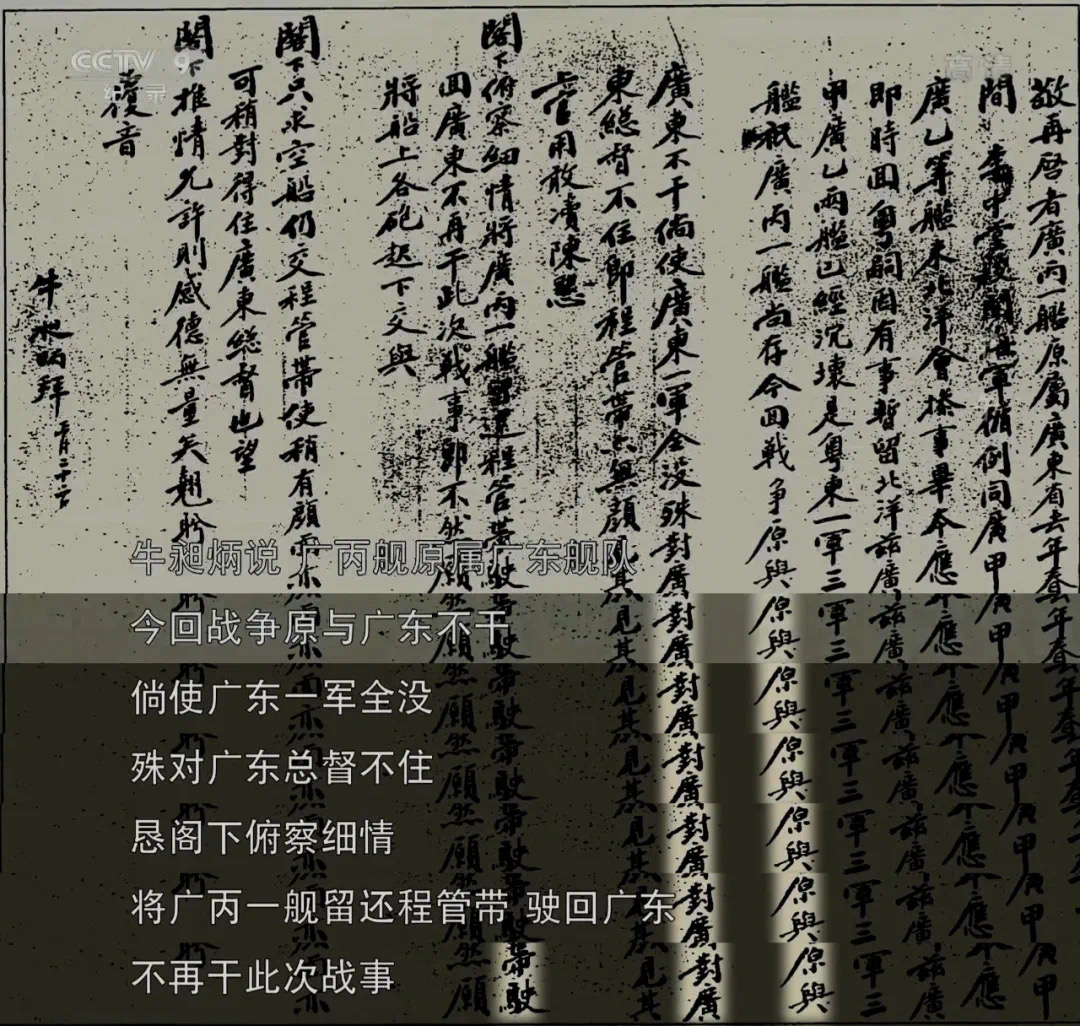 敬再啓者廣丙一艦原屬廣東省去年春
間 李中堂校閱海軍循例同廣甲
廣乙等艦來北洋會操事畢本應
即時回粵嗣因有事暫留北洋茲廣
甲廣乙兩艦已經沉壞是粵東一軍三
艦祇廣丙一艦尚存今回戰争原與
廣東不干倘使廣東一軍全沒殊對廣
東總督不住即程管帶亦無顏見其
上官用敢凟陳懇
閣下俯察細情將廣丙一艦留還程管帶駛
回廣東不再干此次戰事即不然願
將船上各砲起下交與
閣下只求空船仍交程管帶使稍有顏面亦
可稍對得住廣東總督也望
閣下推情允許則感德無量矣翹盼
覆音
牛昶昞拜 正月二十
CCTV 9
纪录
高清
牛昶炳说 广丙舰原属广东舰队
今回战争原与广东不干
倘使广东一军全没
殊对广东总督不住
恳阁下俯察细情
将广丙一舰留还程管带 驶回广东
不再干此次战事